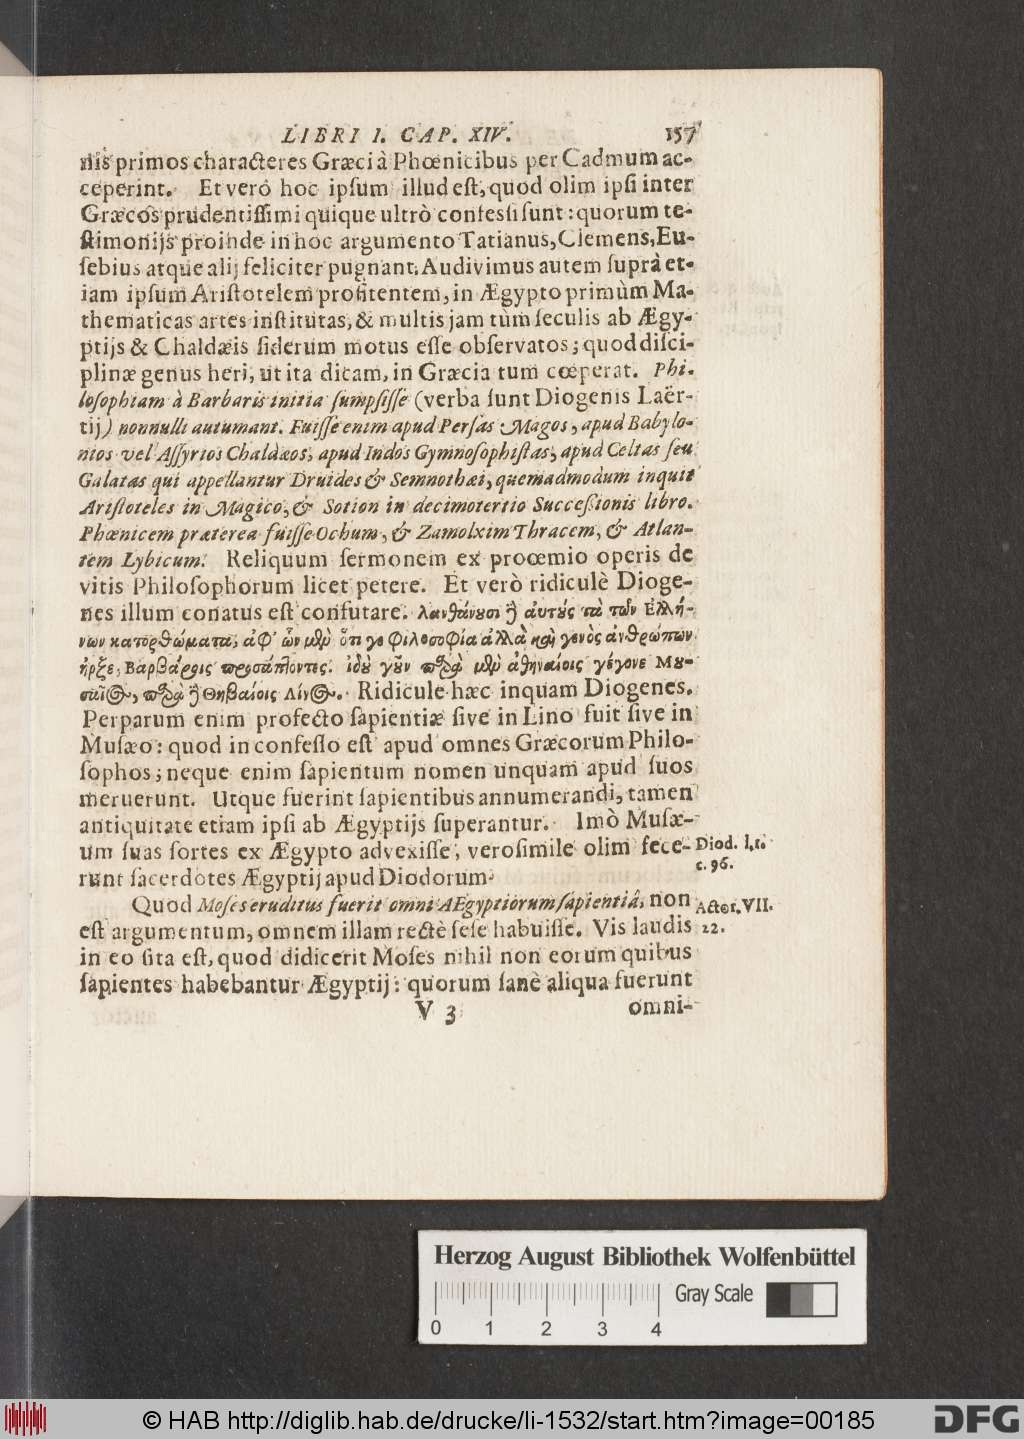 LIBRI I. CAP. XIV. 157
nis primos characteres Græci à Phœnicibus per Cadmum ac-
ceperint. Et verò hoc ipſum illud eſt, quod olim ipſi inter
Græcos prudentiſſimi quique ultrò confeſſi ſunt: quorum te-
ſtimonijs proinde in hoc argumento Tatianus, Clemens, Eu-
ſebius atque alij feliciter pugnant. Audivimus autem ſuprà et-
iam ipſum Ariſtotelem profitentem, in Ægypto primùm Ma-
thematicas artes inſtitutas, & multis jam tùm ſeculis ab Ægy-
ptijs & Chaldæis ſiderum motus eſſe obſervatos; quod diſci-
plinæ genus heri, ut ita dicam, in Græcia tum cœperat. Phi-
loſophiam à Barbaris initia ſumpſiſſe (verba ſunt Diogenis Laër-
tij) nonnulli autumant. Fuiſſe enim apud Perſas Magos, apud Babylo-
nios vel Aſſyrios Chaldæos, apud Indos Gymnoſophiſtas, apud Celtas ſeu
Galatas qui appellantur Druides & Semnothæi, quemadmodum inquit
Ariſtoteles in Magico, & Sotion in decimotertio Succeſſionis libro.
Phœnicem præterea fuiſſe Ochum, & Zamolxim Thracem, & Atlan-
tem Lybicum. Reliquum ſermonem ex proœmio operis de
vitis Philoſophorum licet petere. Et verò ridiculè Dioge-
nes illum conatus eſt confutare. λανθάνουσι δ αυτούς τὰ τῶν Ελλή-
νων κατορθώματα, αφ' ὧν μὴν ὅτι γε φιλοσοφία αλλὰ καὶ γενὸς ανθρώπων
ἦρξε, Βαρβάροις προσάπτοντες. ιδοὺ γοῦν παρὰ μὲν αθηναίοις γέγονε Μου-
σαῖος, παρὰ δ Θηβαίοις Λίνος. Ridicule hæc inquam Diogenes.
Perparum enim profecto ſapientiæ ſive in Lino fuit ſive in
Muſæo: quod in confeſſo eſt apud omnes Græcorum Philo-
ſophos; neque enim ſapientum nomen unquam apud ſuos
meruerunt. Utque fuerint ſapientibus annumerandi, tamen
antiquitate etiam ipſi ab Ægyptijs ſuperantur. Imò Muſæ-
um ſuas ſortes ex Ægypto advexiſſe, veroſimile olim fece- Diod. l. 1.
runt ſacerdotes Ægyptij apud Diodorum. c. 96.
Quod Moſes eruditus fuerit omni AEgyptiorum ſapientiâ, non Actor. VII.
eſt argumentum, omnem illam rectè ſeſe habuiſſe. Vis laudis 22.
in eo ſita eſt, quod didicerit Moſes nihil non eorum quibus
ſapientes habebantur Ægyptij: quorum ſanè aliqua fuerunt
V 3 omni-
Herzog August Bibliothek Wolfenbüttel
Gray Scale
0 1 2 3 4
© HAB http://diglib.hab.de/drucke/li-1532/start.htm?image=00185
DFG